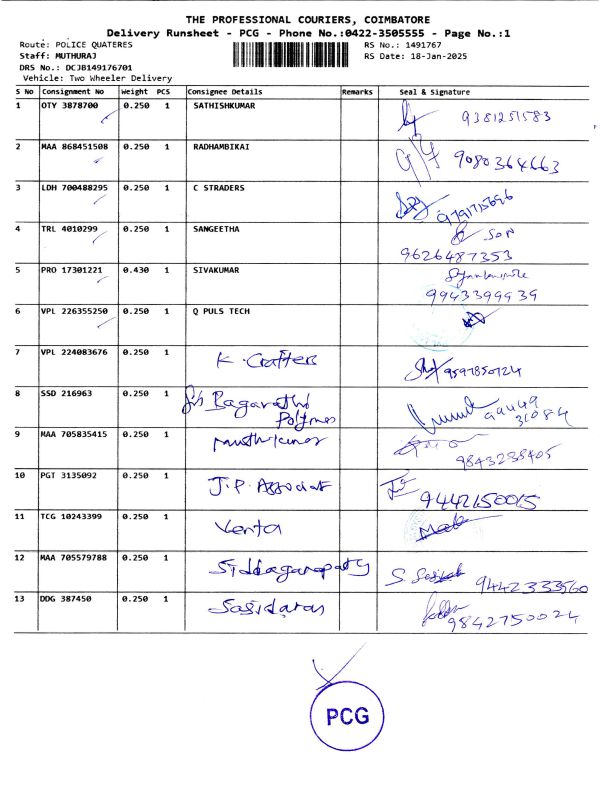 THE PROFESSIONAL COURIERS, COIMBATORE
Delivery Runsheet - PCG - Phone No.:0422-3505555 - Page No.:1
Route: POLICE QUATERES RS No.: 1491767
Staff: MUTHURAJ RS Date: 18-Jan-2025
DRS No.: DCJB149176701
Vehicle: Two Wheeler Delivery
S No Consignment No Weight PCS Consignee Details Remarks Seal & Signature
1 OTY 3878700 0.250 1 SATHISHKUMAR 9381251583
2 MAA 868451508 0.250 1 RADHAMBIKAI 9080364663
3 LDH 700488295 0.250 1 C STRADERS 9791715696
4 TRL 4010299 0.250 1 SANGEETHA SON
9626487353
5 PRO 17301221 0.430 1 SIVAKUMAR
9943399939
6 VPL 226355250 0.250 1 Q PULS TECH
7 VPL 224083676 0.250 1 K. Crafters 9597850724
8 SSD 216963 0.250 1 Polymers
9 MAA 705835415 0.250 1 9843238405
10 PGT 3135092 0.250 1 J.P. Associat 9442150015
11 TCG 10243399 0.250 1 Venta
12 MAA 705579788 0.250 1 9442333560
13 DDG 387450 0.250 1 Sasidaran 9842750024
PCG